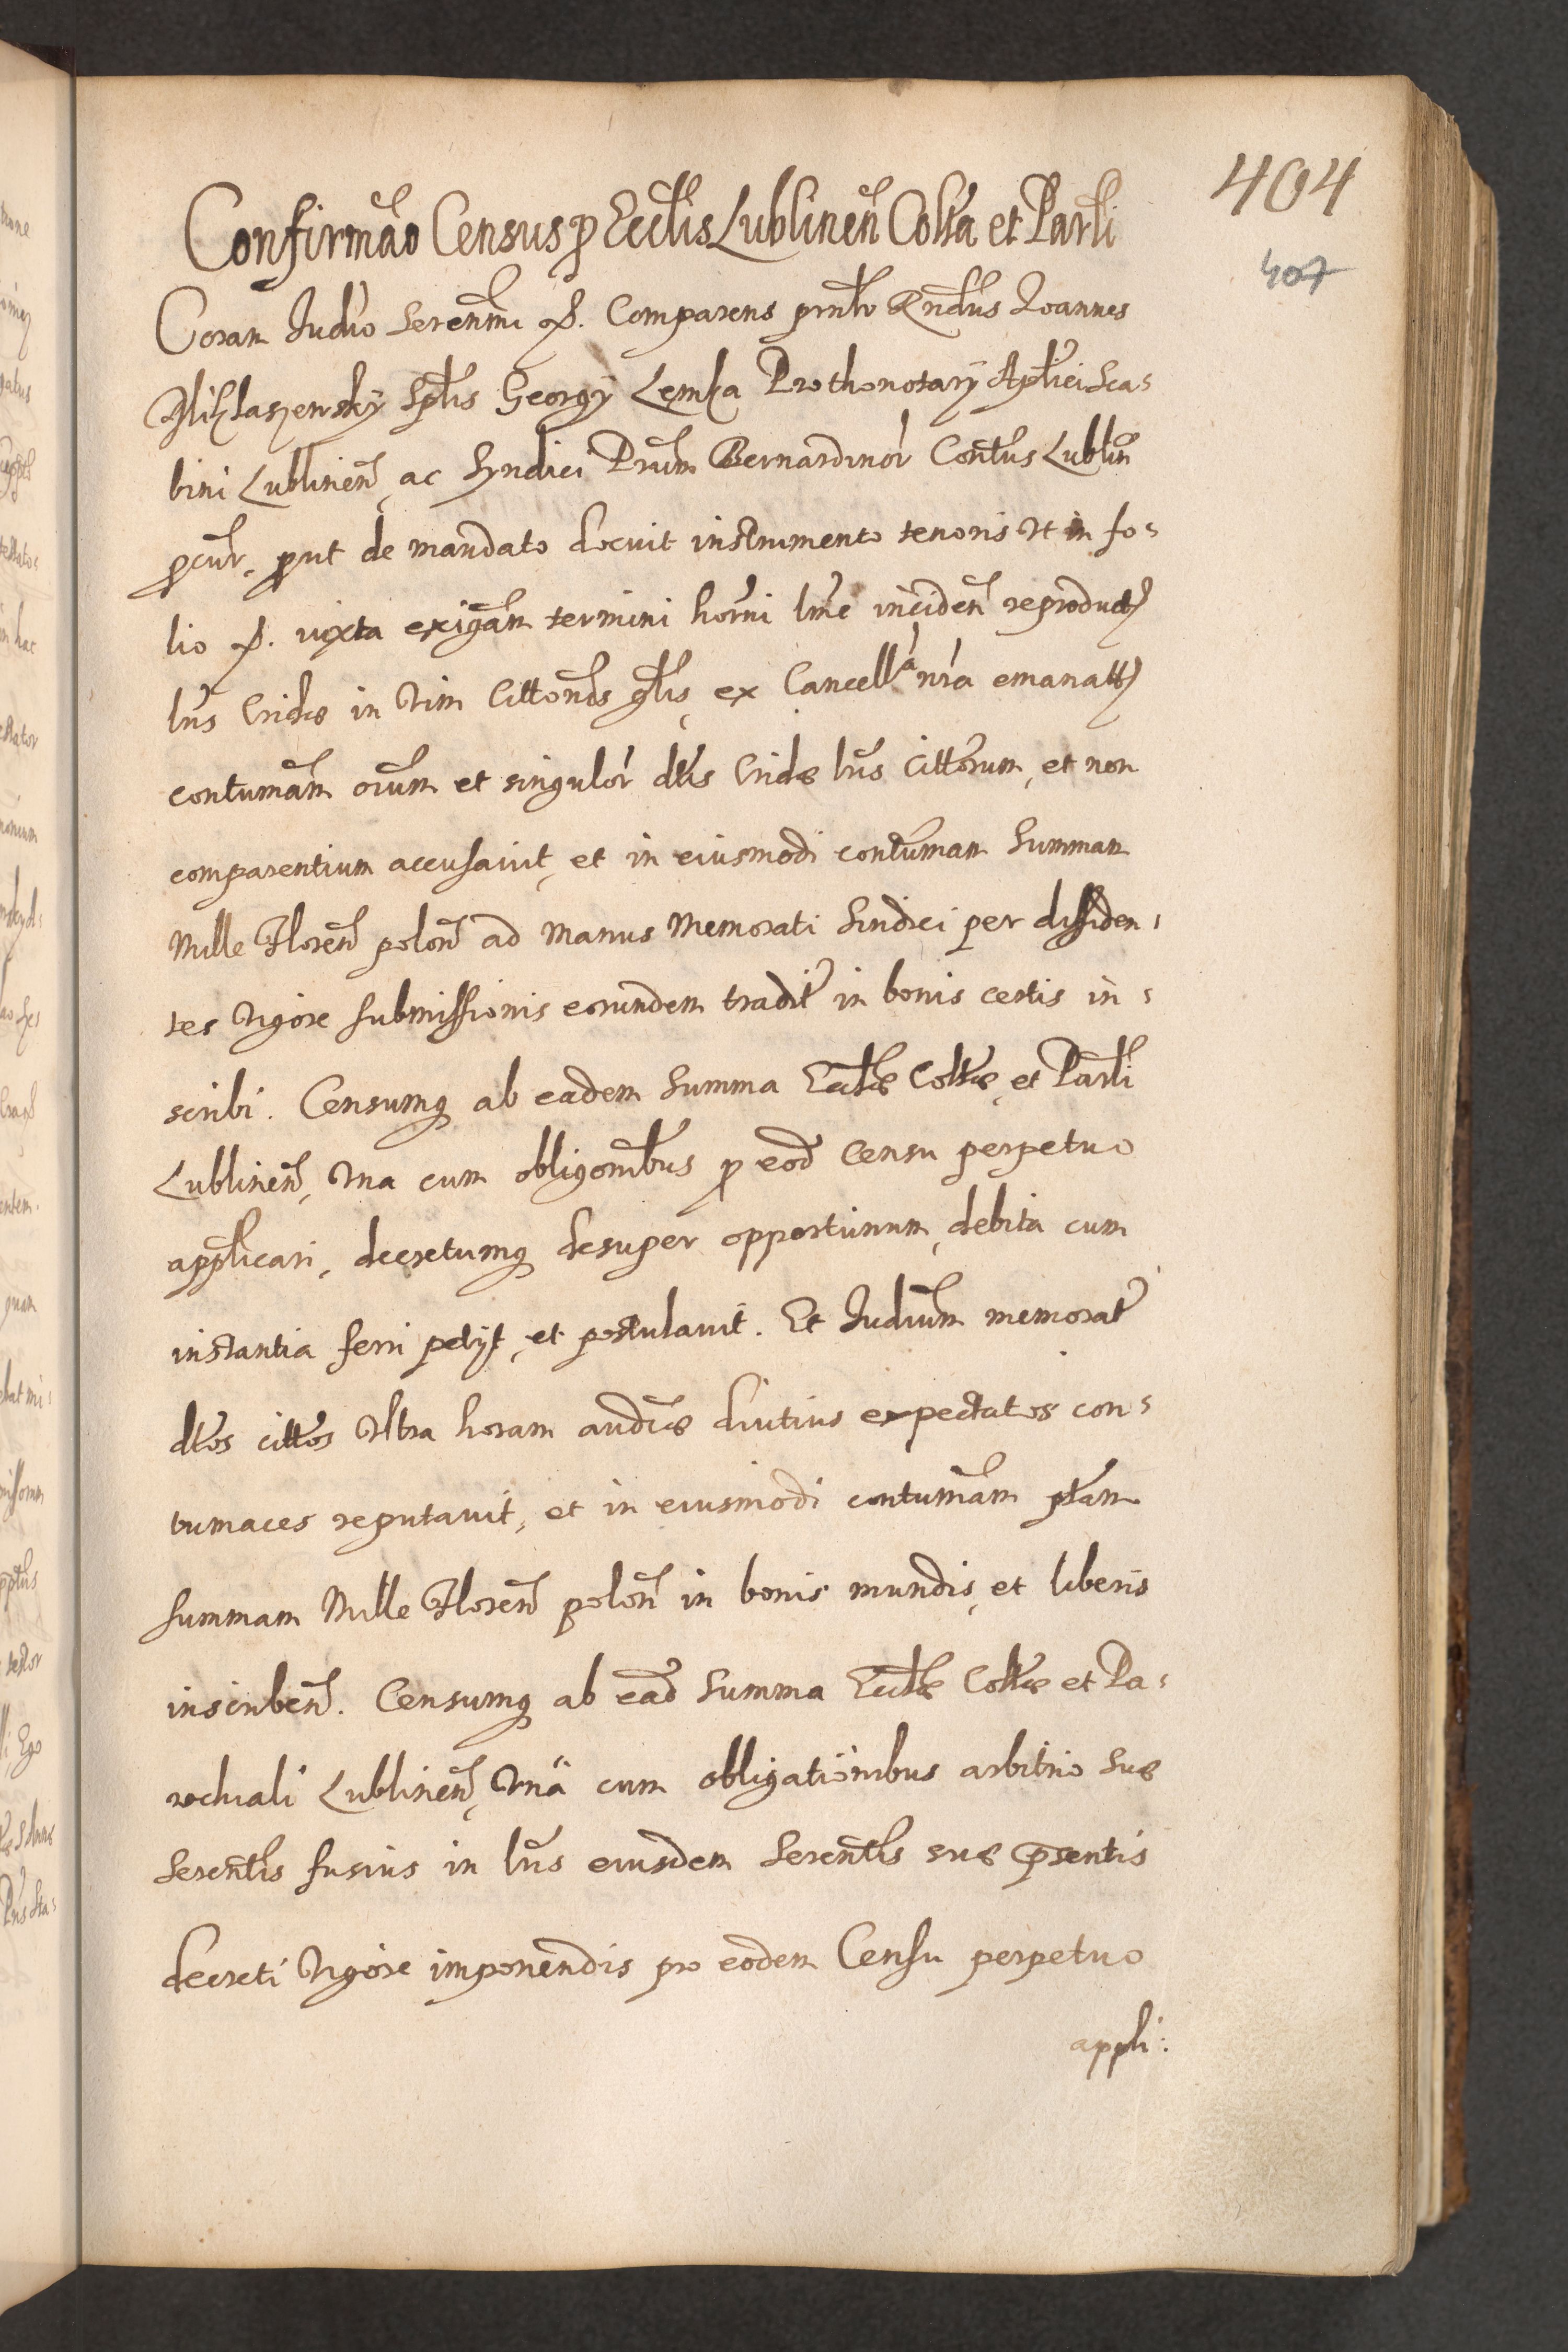 404
407
Confirmão Census p Ecclis Lublinen Colta et Parli
Coram Judio Serenmi &. Comparens prnlr Rndus Joannes
Spllis Georgÿ Lemka Prothonotarÿ Aplici Sca-
bini Lublinen, ac Syndici Prum Bernardinor Contus Lublin
pcur, put de mandato docuit instrumento tenoris Vt in fo-
lio &. iuxta exigam termini horni lme inciden reproductis
lris Cridæ in Vim Cittonis glis, ex Cancellâ nra emanattis
contumam oium et singulor dtis Cridæ lris Cittorum, et non
comparentium accusavit, et in eiusmodi contumam Summam
Mille Floren polon ad manus memorati Sindici per dissiden-
tes Vigore submissionis eorundem tradit in bonis certis in-
scribi. Censumq ab eadem summa Ecclæ Coltæ, et Parli
Lublinen, Vna cum obligonibus p eod Censu perpetuo
applicari, decretumq desuper opportunum, debita cum
instantia ferri petijt, et postulavit. Et Judium memorat
dtos cittos Vltra horam audiæ diutius expectatos con-
tumaces reputavit, et in eiusmodi contumam ptam
summam Mille Floren polon in bonis mundis, et liberis
inscriben. Censumq ab ead Summa Ecclæ Coltæ et Pa-
rochiali Lublinen, Vnä cum obligationibus arbitrio Suæ
Serentis fusius in lris eiusdem Serentis suæ præsentis
decreti Vigore imponendis pro eodem Censu perpetuo
appli: